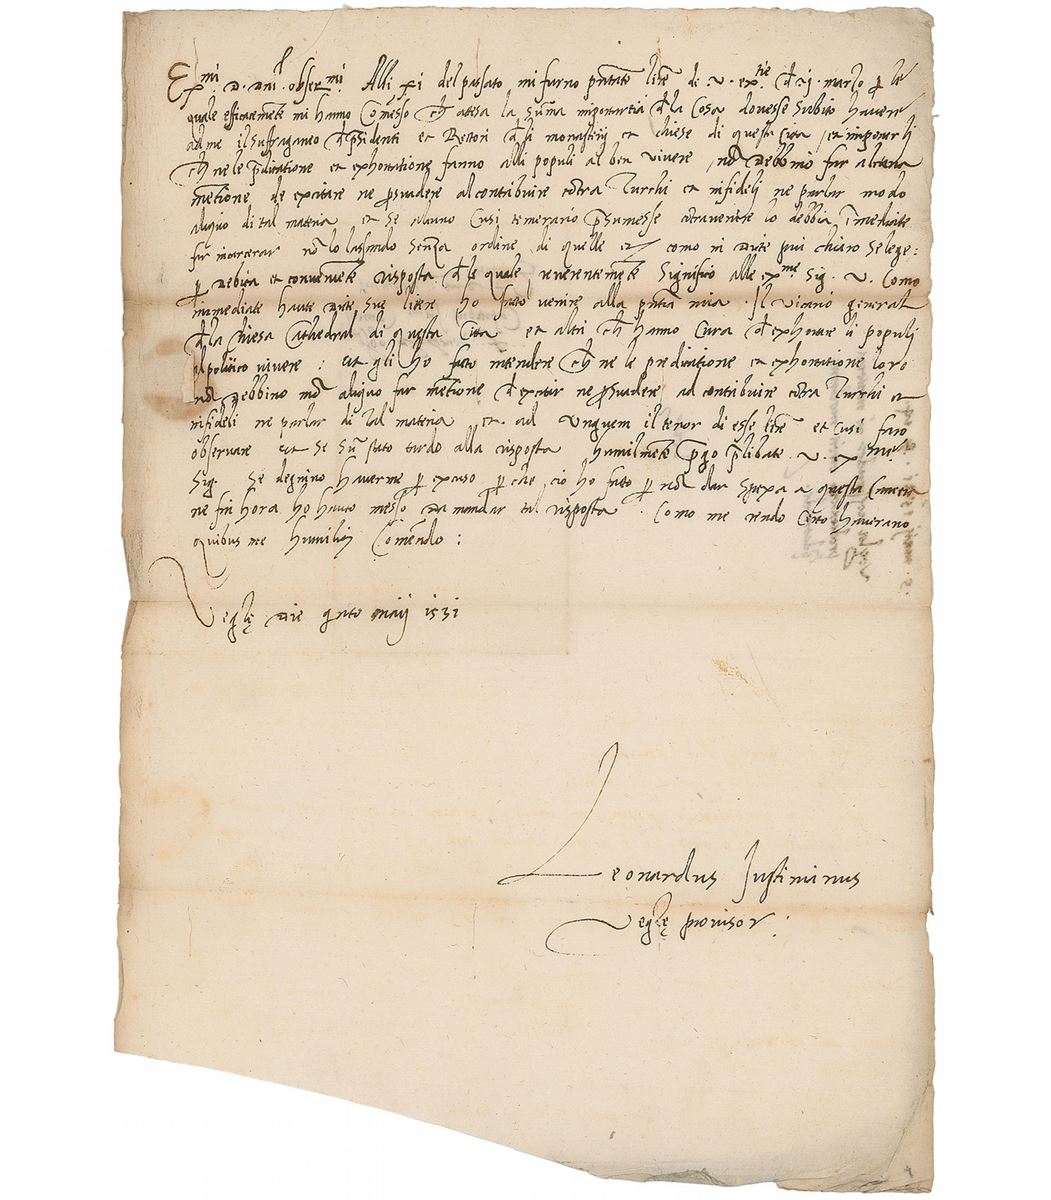 Ex.mi D. Dni obser.mi Alli xi del passato mi furno p̃ntate lr̃e di v. ex.tie di 21 marzo p̱ le
quale efficacemẽte mi hanno com̃esso ch̃ atesa la sum̃a importãtia d̃ la cosa dovesse subito havere
ad me il sufraganeo p̃sidenti et Rettori d̃ li monasterij et chiese di questa Cita et imponerli
ch̃ ne le p̃dicatione et exhortatione fanno alli populi al ben vivere nõ debbino far alcuna
mẽtione de excitare ne p̱suadere al contribuire cõtra Turchi et infideli ne parlar modo
aliquo di tal materia et se alcuno cusi temerario p̃sumesse cõtravenire lo debbia im̃ediate
far incarcerar nõ lo lassando senza ordine di quelle etc como in dite piu chiaro se lege:
p̱ debita et conveniẽte risposta d̃ le quale reverentemẽte significo alle ex.me Sig. v. Como
immediate havute dite sue litere ho fatto venire alla p̃ntia mia. Il vicario general
d̃ la chiesa Cathedral di questa Cita et altri ch̃ hanno Cura d̃ exhortare li populi
al politico vivere: et gli ho fatto intendere ch̃ ne le predicatione et exhortatione loro
nõ debbino mõ aliquo far mẽtione d̃ excitar ne p̱suadere ad contribuire cõtra Turchi et
infideli ne parlar di tal materia et ad unguem il tenor di esse lr̃e et cusi faro
observare et se sũ stato tardo alla risposta humilmẽte p̱go p̃libate v. ex.me
Sig. se degnino haverme p̱ excuso p̱ che cio ho fatto p̱ nõ dar spexa a questa Camera
ne fin hora ho havuto messo da mandar tal risposta. Como me rendo certo haverano
quibus me humiliter Comẽndo:
Veglę die q̃nto maij 1531
Leonardus Justinianus
Veglę provisor: